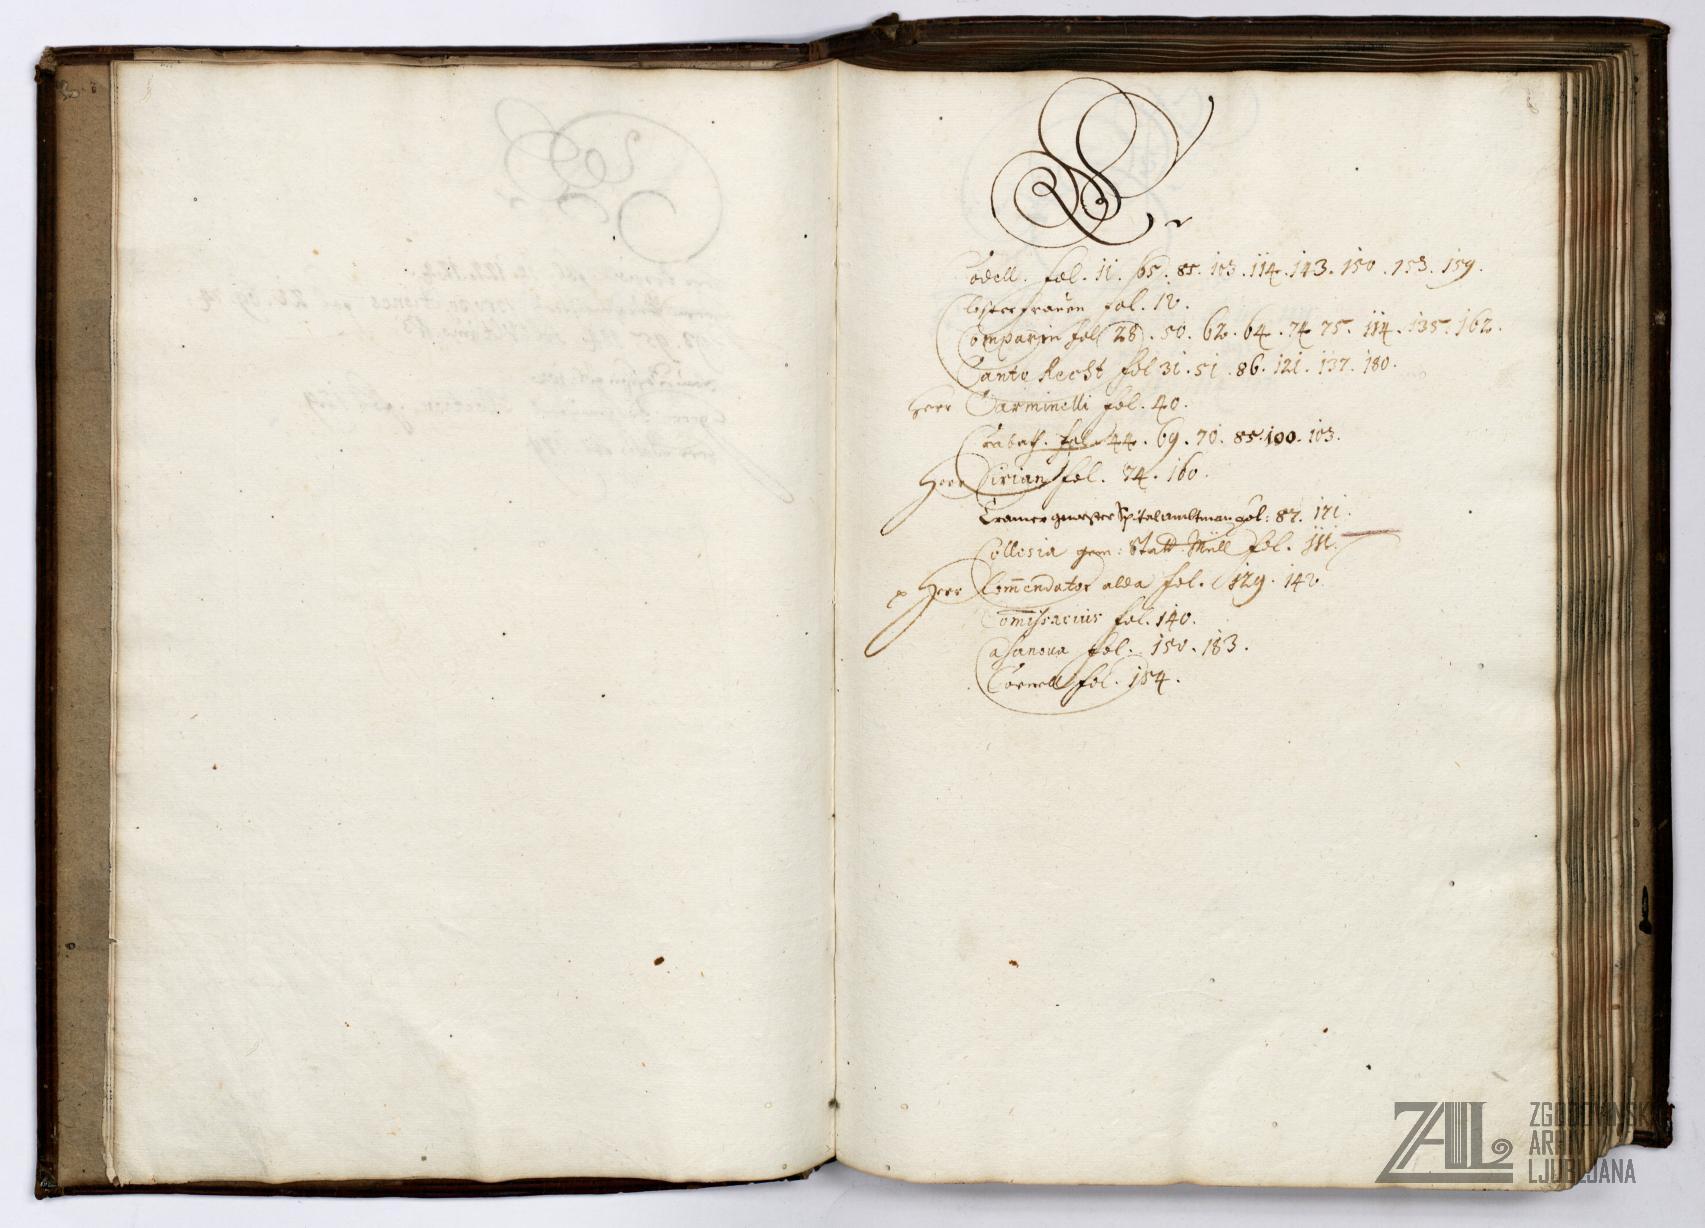 C
Codell. fol. 11. 65. 85. 103. 114. 143. 150. 153. 159.
Closterfrauen fol. 12.
Comparin fol. 28. 50. 62. 64. 74. 75. 114. 135. 162.
Canto Recht fol 31. 51. 86. 121. 137. 180.
Herr Carminelli fol. 40.
fol. 44. 69. 70. 85. 100. 103.
Herr Cirian fol. 74. 160.
Cramer gwester Spitelambtman fol: 87. 171.
Collesia gem: Statt Müll fol. 111.
Herr Com̄endator alda fol. 129. 142.
Comissarius fol. 140.
Casanova fol. 150. 183.
fol. 154.
ZAL ZGODOVINSKI
ARHIV
LJUBLJANA